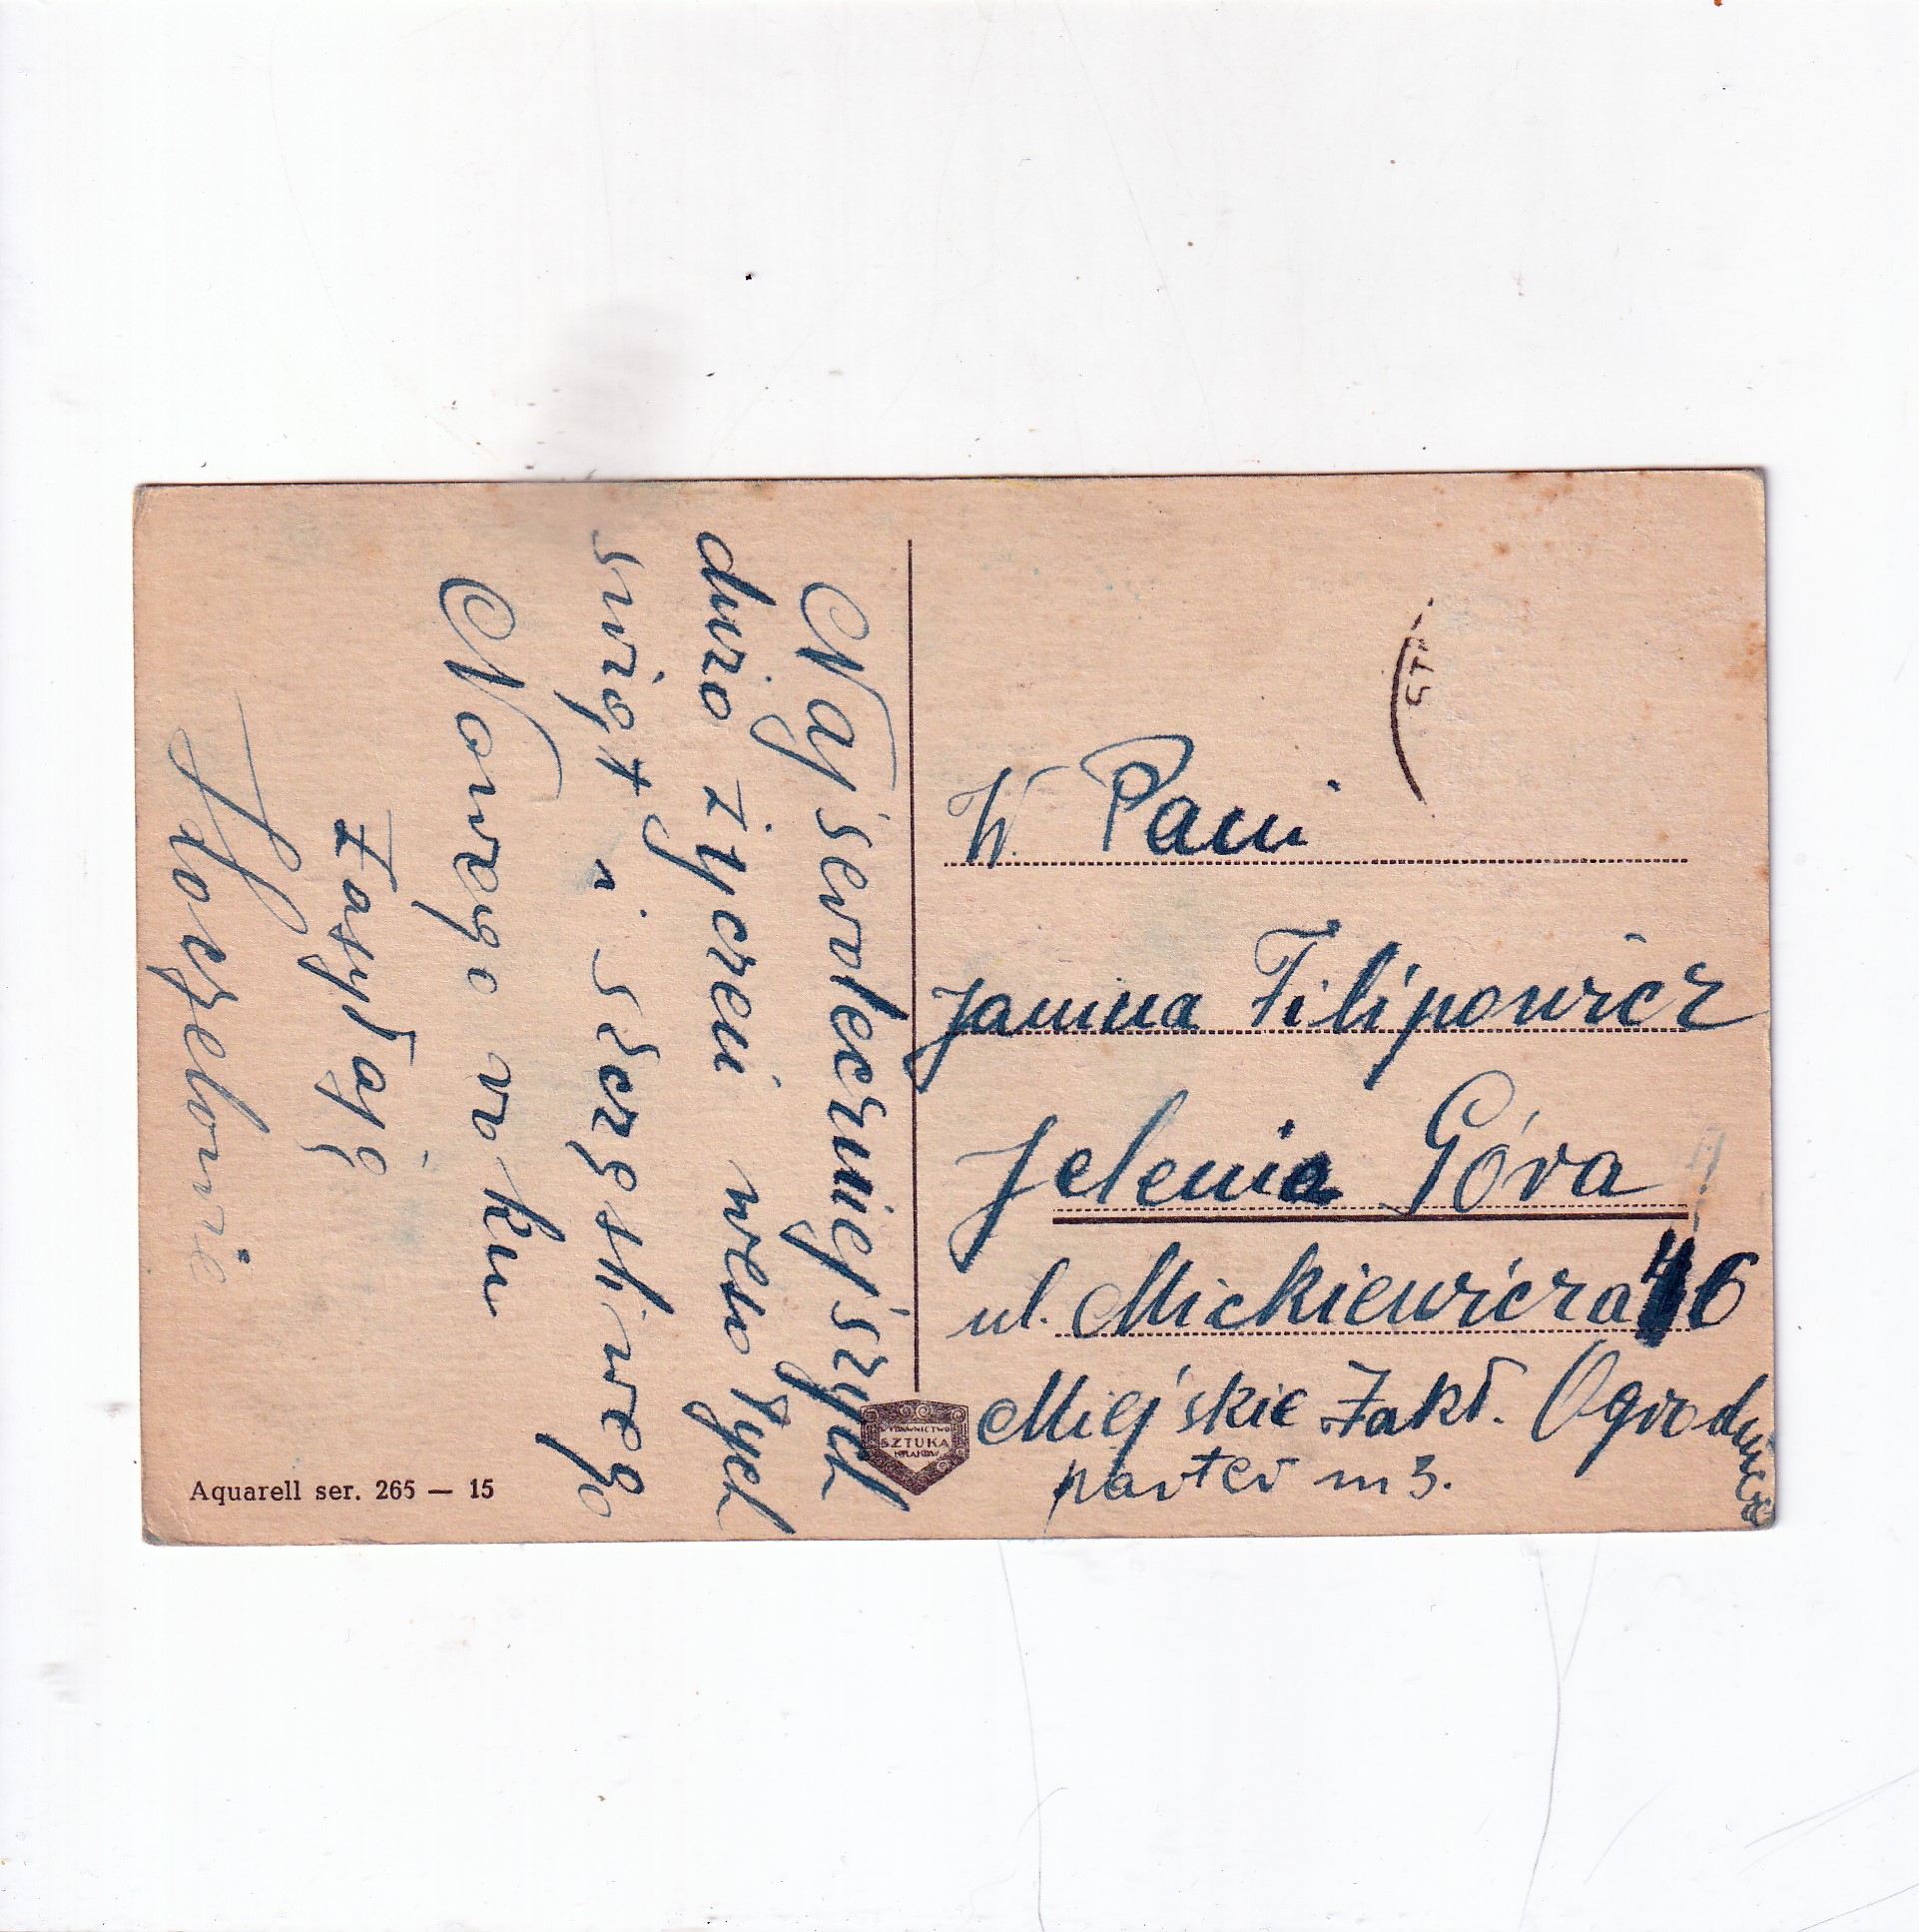 Najserdeczniejszych
dużo życzeń wesołych
świąt i szczęśliwego
Nowego roku
zasyłają
W. Pani
Janina Filipowicz
Jelenia Góra
ul. Mickiewicza 46
Miejskie Zakł. Ogrodnicze
parter m 3.
WYDAWNICTWO
SZTUKA
KRAKÓW
Aquarell ser. 265 — 15
ST